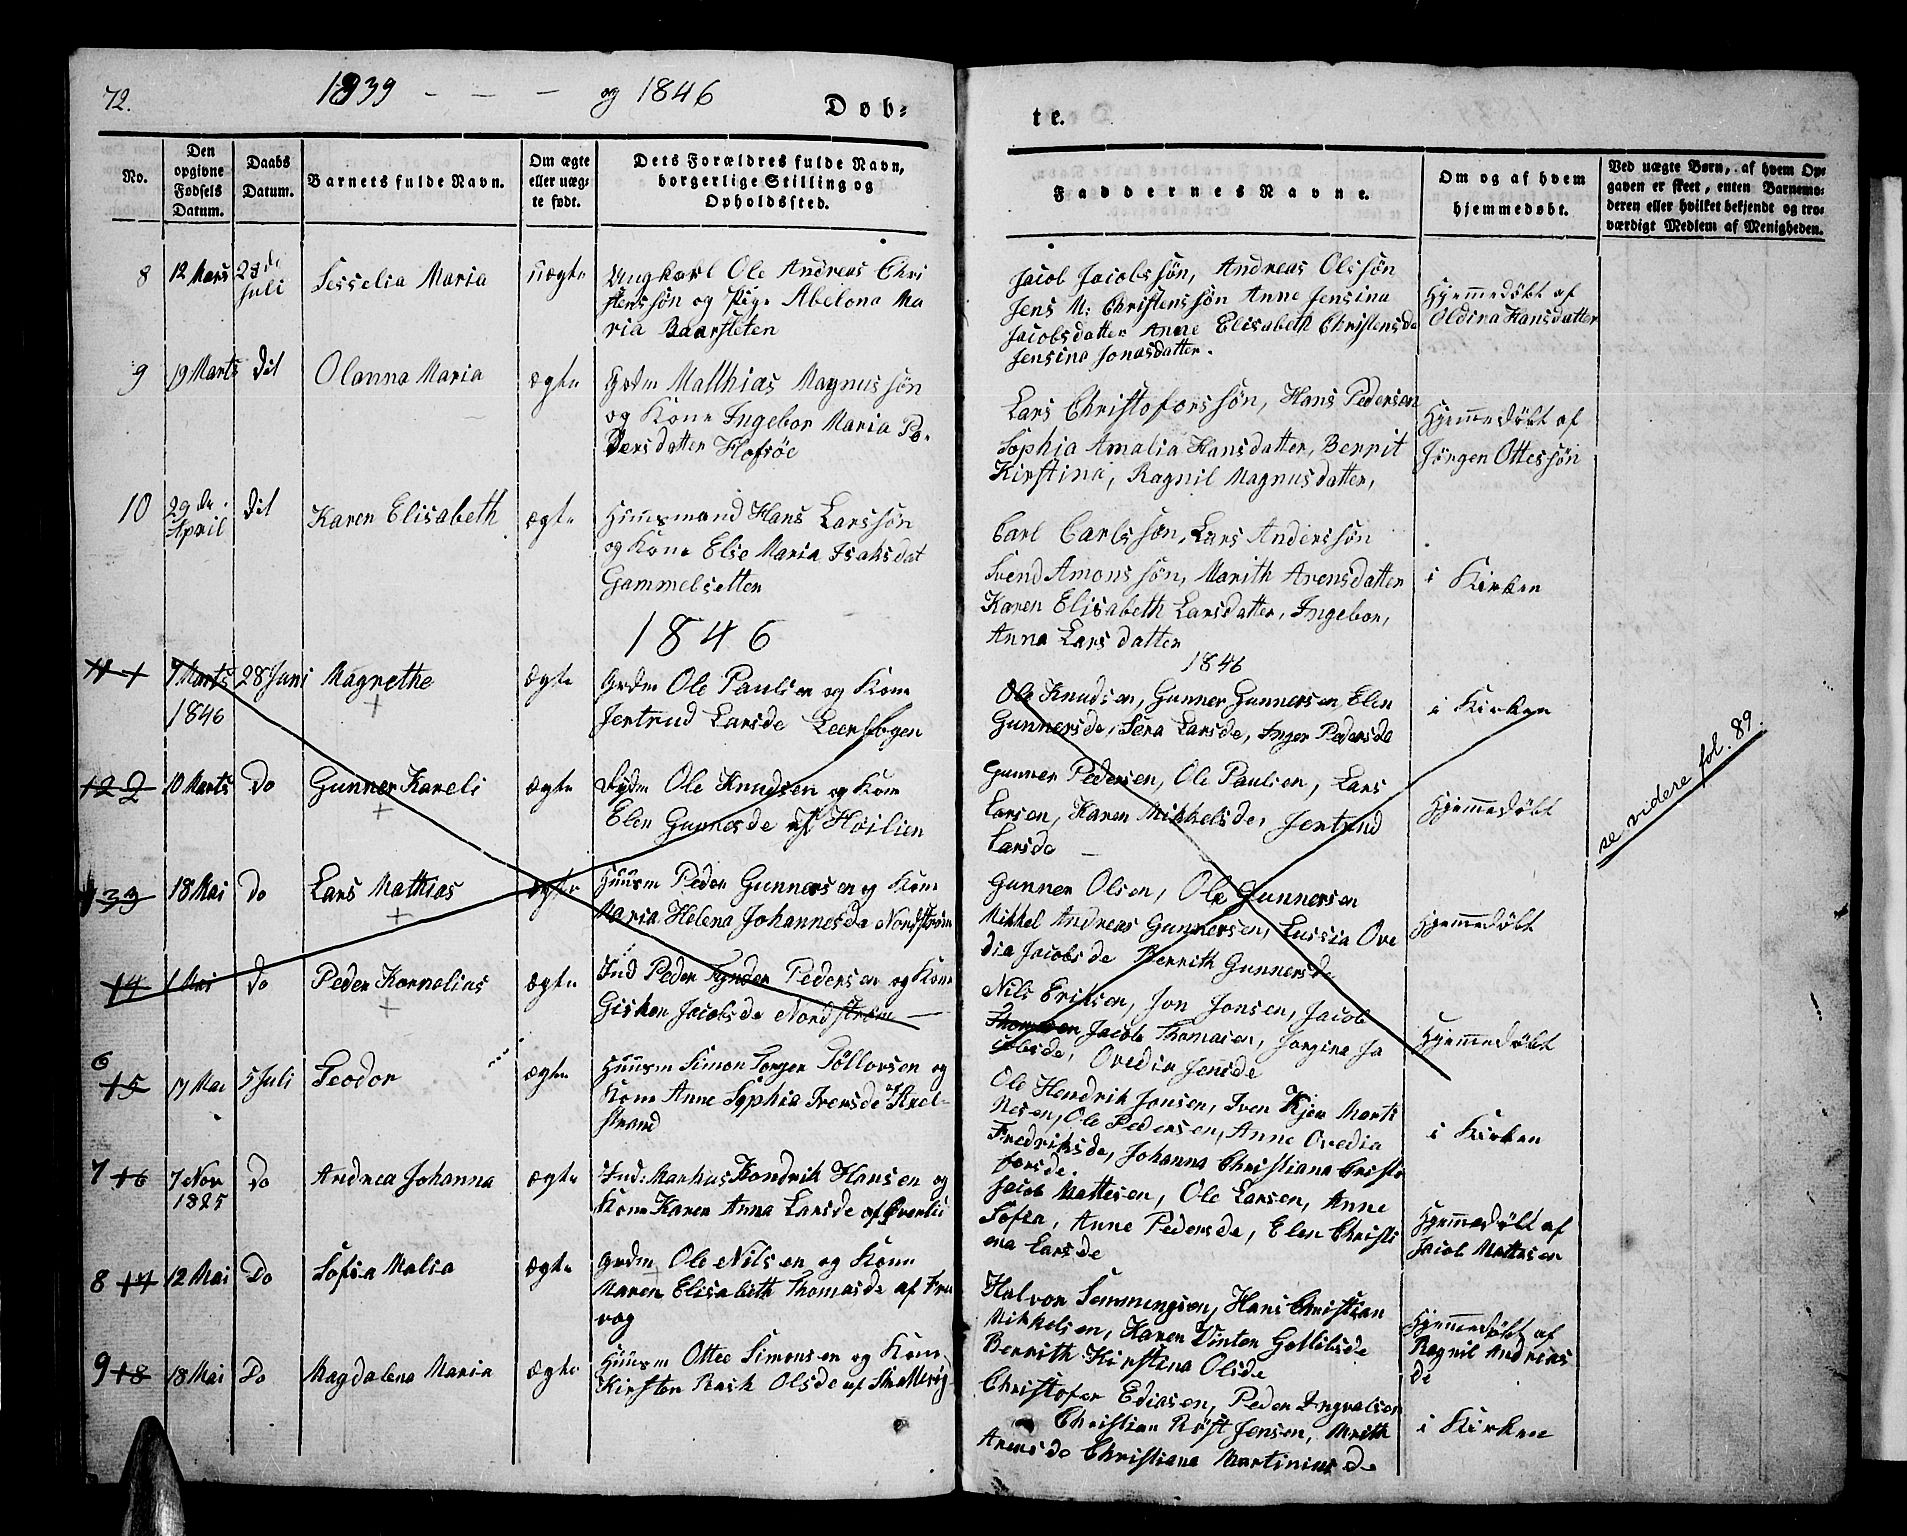 72.
1839 - - - og 1846
Døb=
te.
No.
Den opgivne Fødsels Datum.
Daabs Datum.
Barnets fulde Navn.
Om ægte eller uægte født.
Dets Forældres fulde Navn, borgerlige Stilling og Opholdssted.
Faddernes Navne.
Om og af hvem hjemmedøbt.
Ved uægte Børn, af hvem Opgaven er skeet, enten Barnemoderen eller hvilket bekjendt og troværdigt Medlem af Menigheden.
8 12 Mars 28de Juli Sesselia Maria uægte
Ungkarl Ole Andreas Chri
stenssøn og Pige Abelona Ma
ria
Jacob Jacobssøn, Andreas Olssøn
Jens M: Christenssøn Anne Jensina
Jacobsdatter Anne Elisabeth Christensda
Jensina Jonasdatter.
Hjemmedøbt af
Oldina Hansdatter
9 19 Marts dit Olanna Maria ægte
Grdm Matthias Magnussøn
og Kone Ingebor Maria Pe-
dersdatter Hofsøe
Lars Christoforssøn, Hans Pedersen
Sophia Amalia Hansdatter, Berrit
Kirstina, Ragnil Magnusdatter,
Hjemmedøbt af
Jørgen Ottessøn
10 29de April dit Karen Elisabeth ægte
Huusmand Hans Larssøn
og Kone Elie Maria Isaksdat
Gammelsetter
Carl Carlssøn, Lars Anderssøn
Svend Amonssøn, Marith Arensdatter
Karen Elisabeth Larsdatter, Ingebor,
Anna Larsdatter
i Kirken
1846
1846
11 1 7 Marts 1846 28 Juni Magrethe ægte
Grdm Ole Paulsen og Kone
Jertrud Larsde Leerstogen
Ole Knudsen, Gunner Gunnersen Elen
Gunnersde, Sera Larsde, Inger Pedersde
i Kirken
12 2 10 Marts Do Gunner Kareli ægte
Ole Knudsen og Kone
Elen Gunnersde af Høilien
Gunner Pedersen, Ole Paulsen, Lars
Larsen, Karen Mikkelsde, Jertrud
Larsde
Hjemmedøbt
13 3 18 Mai Do Lars Mathias ægte
Huusm Peder Gunnersen og Kone
Maria Helena Johannesde Nordstrøm
Gunner Olsen, Ole Gunnersen
Mikkel Andreas Gunnersen, Lussia Ove
dia Jacobsde Berrith Gunnersde
Hjemmedøbt
14 1 Mai Do Peder Kornelius ægte
Ind Peder Tynder Pedersen og Kone
Gisken Jacobsde Nordstrøm
Nils Eriksen, Jon Jonsen, Jacob
Thomasen Jacob Thomasen, Jorgina Ja
cobsde, Ovedia Jensde
Hjemmedøbt
6 15 17 Mai 5 Juli Teodor ægte
Huusm Simon Torger Tøllorsen og
Kone Anne Sophia Iversde af Axel-
strand
Ole Hendrik Jonsen, Iven Kjer Marti
nesen, Ole Pedersen, Anne Ovedia
Fredriksde, Johanna Christiana Cristo
forsde.
i Kirken
7 16 7 Nov 1825 Do Andrea Johanna ægte
Ind: Markus Hendrik Hansen og
Kone Karen Anna Larsde af Øverlii
Jacob Mattesen, Ole Larsen, Anne
Sofia, Anne Pedersde, Elen Christi
ana Larsde
Hjemmedøbt af
Jacob Mattesen
8 17 12 Mai Do Sofia Malia ægte
Grdm Ole Nilsen og Kone
Maren Elisabeth Thomasde af Fre
vog
Halvor Semmingsen, Hans Christian
Mikkelsen, Karen Vinter Gotlibsde
Berrith Kirstina Olsde
Hjemmedøbt af
Ragnil Andrias
de
9 18 18 Mai Do Magdalena Maria ægte
Huusm Ottee Simonsen og Kone
Kirsten Rask Olsde af Skallevig
Christofer Ediasen, Peder Ingvalsen
Christian Røst Jensen, Mrith
Arensde Christiana Martiniusde
i Kirken
se videre fol. 89.